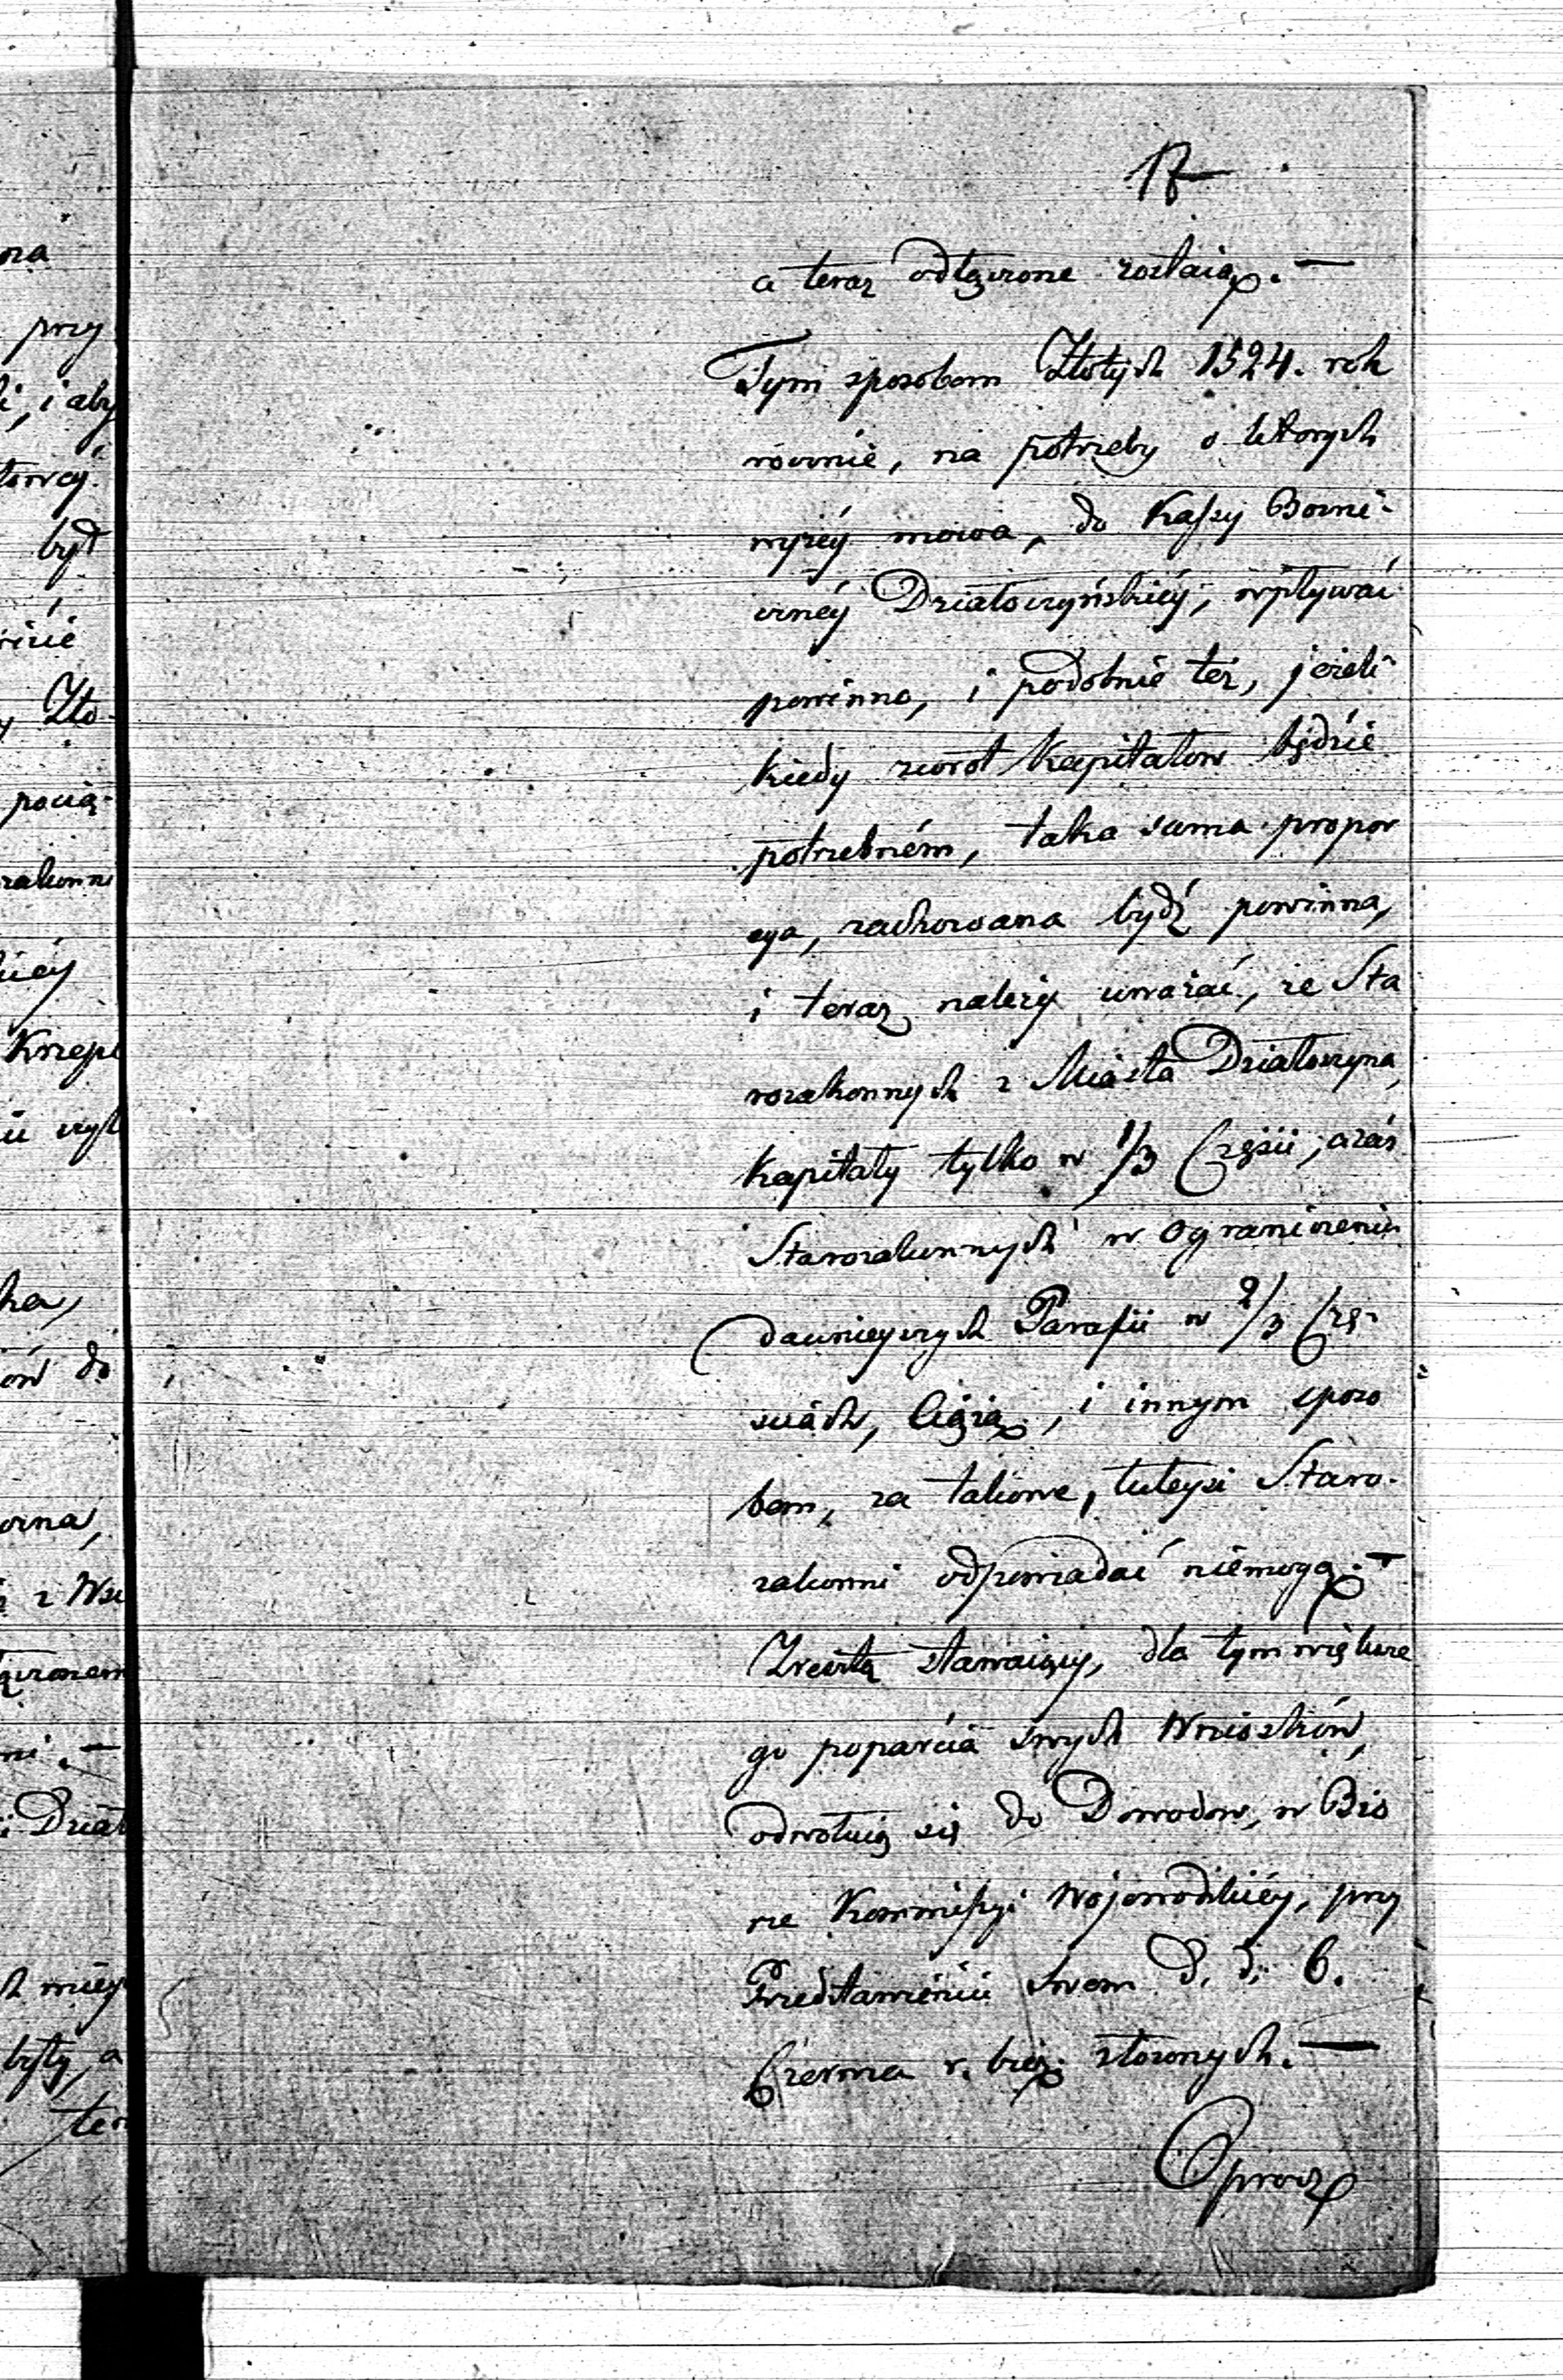 17
a teraz odłączone zostaią. —
Tym sposobem Złotych 1524. rok
rocznie, na potrzeby o których
wyżéy mowa, do Kassy Bożni-
cznéy Działoszyńskiéy, wpływać
powinno, i podobnie też, jeżeli
kiedy zwrot Kapitałow będzie
potrzebném, taka sama propor
cya, zachowana bydź powinna,
i teraz należy uważać, że Sta
rozakonnych z Miasta Działoszyna,
kapitały tylko w 1/3 Części, a zaś
Starozakonnych w Ograniczeniu
dawnieyszych Parafii w 2/3 Czę-
sciách, ciążą, i innym sposo
bem, za takowe, tuteysi Staro-
zakonni odpowiadać niemogą. —
Zresztą stawaiący, dla tym większe
go poparcia swych Wniosków,
odwołuią się do Dowodow, w Bió
rze Kommissyi Wojewodzkiéy, przy
Przedstawieniu swem d. d. 6.
Czerwca r. bież. złożonych. —
Oprocz
ora
przy
i, i aby
był
Zło-
pocią-
Krzepi
ka,
ów do
z Wsi
ni. —
i Dział
były, a